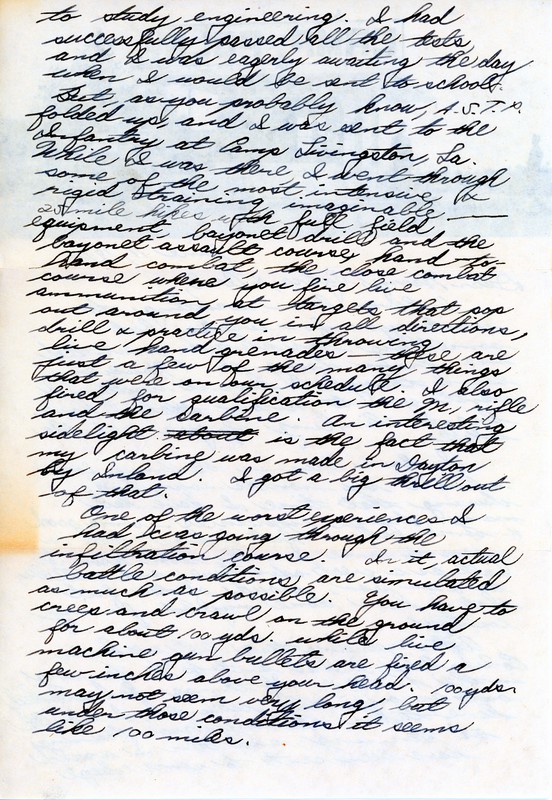 to study engineering. I had
successfully passed all the tests,
and I was eagerly awaiting the day
when I would be sent to school.
But, as you probably know, A.S.T.P.
folded up, and I was sent to the
Infantry at Camp Livingston, La.
While I was there, I went through
some of the most intensive &
rigid training imaginable —
25 mile hikes with full field
equipment, bayonet drill and the
bayonet assault course, hand-to-
hand combat, the close combat
course where you fire live
ammunition at targets that pop
out around you in all directions,
drill & practice in throwing
live hand grenades — these are
just a few of the many things
that were on our schedule. I also
fired for qualification the M1 rifle
and the carbine. An interesting
sidelight about is the fact that
my carbine was made in Dayton
by Inland. I got a big thrill out
of that.
One of the worst experiences I
had was going through the
infiltration course. In it, actual
battle conditions are simulated
as much as possible. You have to
creep and crawl on the ground
for about 100 yds. while live
machine gun bullets are fired a
few inches above your head. 100 yds.
may not seem very long, but
under those conditions it seems
like 100 miles.